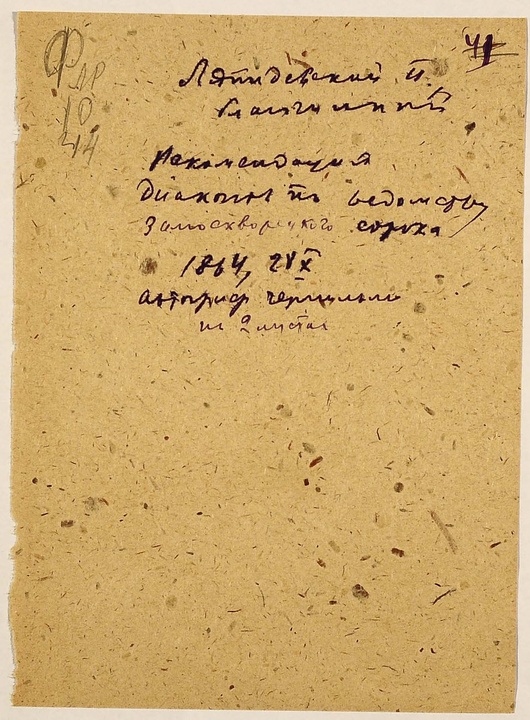 41
Ф
АР
10
44
Ляпидевский П.
благочинный
Рекомендация
Диаконов по ведомству
Замоскворецкого сорока
1864, 24 X
автограф чернилами
на 2 листах